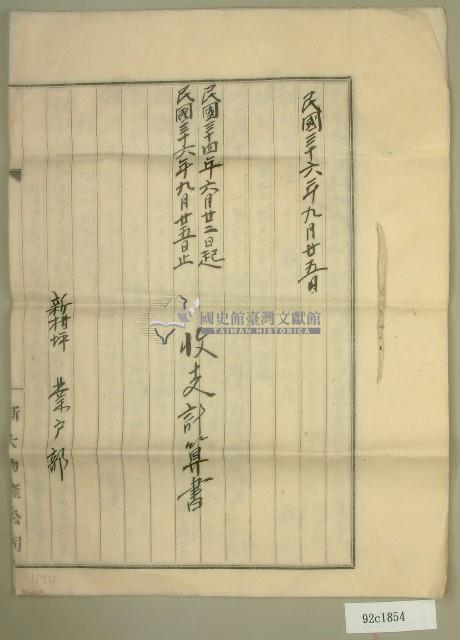 民國三十六年九月廿五日
民國三十四年六月廿二日起
民國三十六年九月廿五日止
收支計算書
新耕坪 業戶部
國史館臺灣文獻館
TAIWAN HISTORICA
物產公司
1134
92c1854